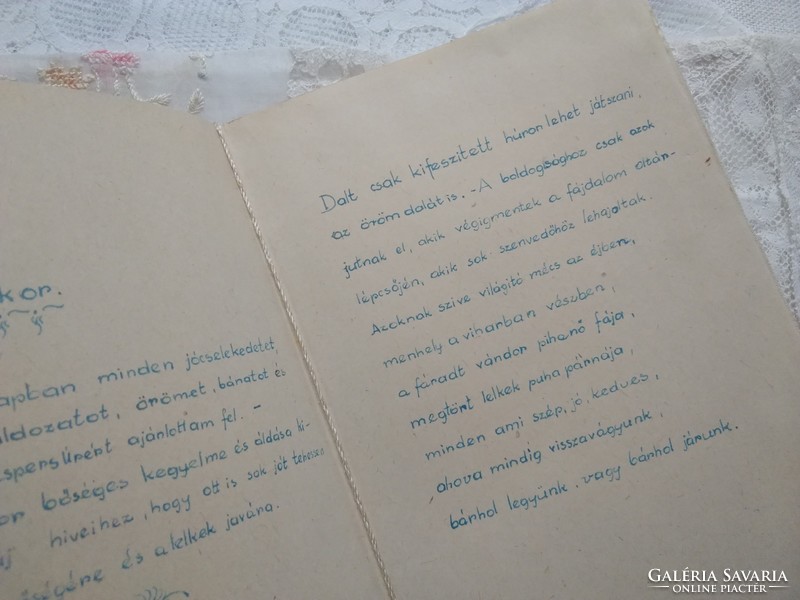 kor.
minden jócselekedetet,
áldozatot, örömet, bánatot és
ajánlottam fel. -
bőséges kegyelme és áldása ki-
hiveihez, hogy ott is sok jót tehessen
és a lelkek javára.
Dalt csak kifeszitett húron lehet játszani,
az öröm dalát is. - A boldogsághoz csak azok
jutnak el, akik végigmentek a fájdalom oltár-
lépcsőjén, akik sok szenvedőhöz lehajoltak.
Azoknak szive világitó mécs az éjben,
menhely a viharban vészben,
a fáradt vándor pihenő fája,
megtört lelkek puha párnája,
minden ami szép, jó, kedves,
ahova mindig visszavágyunk,
bárhol legyünk, vagy bárhol járunk.
GALÉRIA SAVARIA
ONLINE PIACTÉR